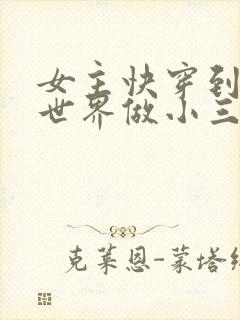 女主快穿到
世界做小三
克莱恩-蒙塔